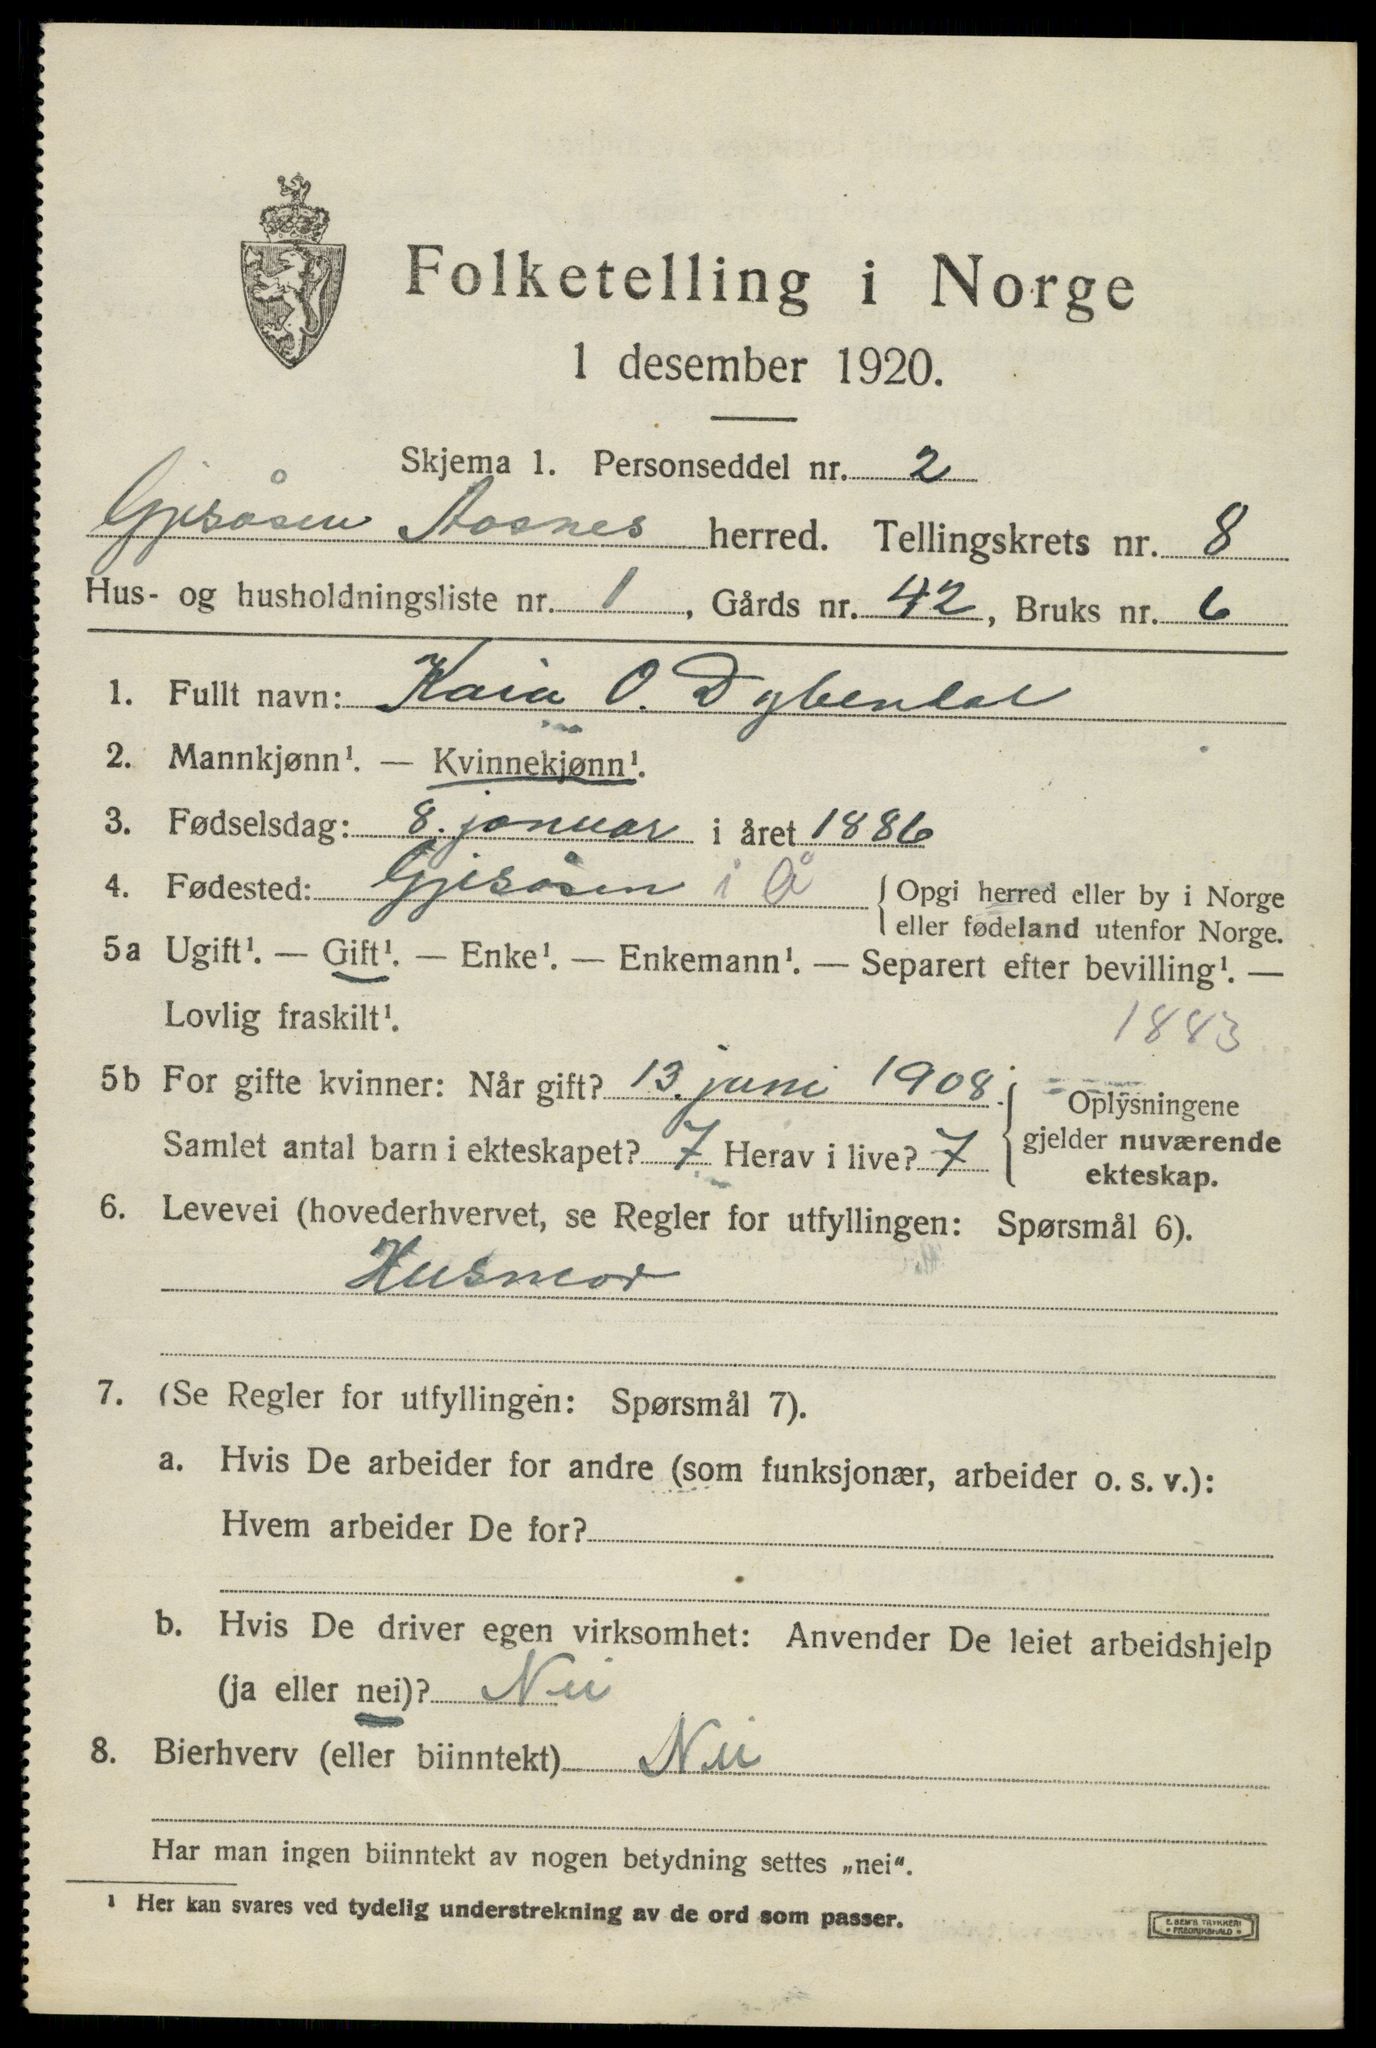 Folketelling i Norge
1 desember 1920.
Skjema 1. Personseddel nr. 2
Gjesåsen Aasnes herred. Tellingskrets nr. 8
Hus- og husholdningsliste nr. 1, Gårds nr. 42, Bruks nr. 6
1. Fullt navn: Kaia O. Dybendal
2. Mannkjønn¹. — Kvinnekjønn¹.
3. Fødselsdag: 8. januar i året 1886
4. Fødested: Gjesåsen i Å { Opgi herred eller by i Norge
eller fødeland utenfor Norge.
5a Ugift¹. — Gift¹. — Enke¹. — Enkemann¹. — Separert efter bevilling¹. —
Lovlig fraskilt¹.
1883
5b For gifte kvinner: Når gift? 13. juni 1908. { Oplysningene
Samlet antal barn i ekteskapet? 7 Herav i live? 7 gjelder nuværende
ekteskap.
6. Levevei (hovederhvervet, se Regler for utfyllingen: Spørsmål 6).
Husmor
7. (Se Regler for utfyllingen: Spørsmål 7).
a. Hvis De arbeider for andre (som funksjonær, arbeider o. s. v.):
Hvem arbeider De for?
b. Hvis De driver egen virksomhet: Anvender De leiet arbeidshjelp
(ja eller nei)? Nei
8. Bierhverv (eller biinntekt) Nei
Har man ingen biinntekt av nogen betydning settes „nei“.
¹ Her kan svares ved tydelig understrekning av de ord som passer.
E. SEM'S TRYKKERI
FREDRIKSHALD